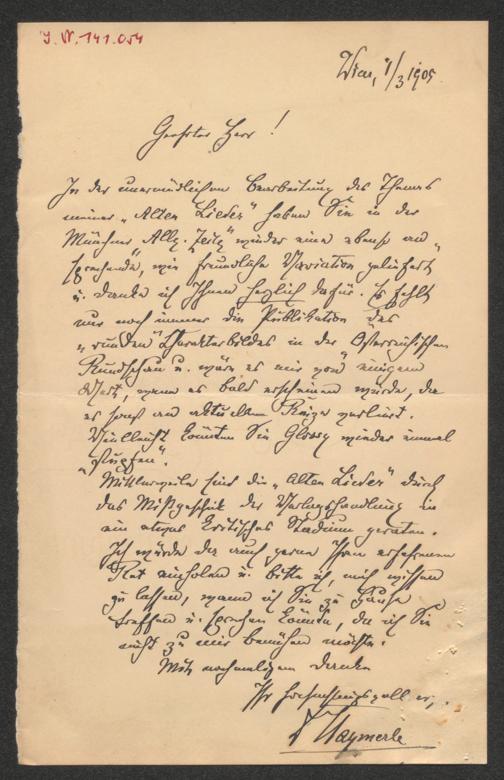 J. N. 141.054
Wien, 1/3 1905
Geehrter Herr!
In der unermüdlichen Bearbeitung des Themas
meiner „Alten Lieder" haben Sie in der
Münchner Allg. Zeitg wieder eine ebenso an„
sprechende, wie freundliche Variation geliefert
u. danke ich Ihnen herzlich dafür. Es fehlt
nur noch immer die Publikation des
„runden" Charakterbildes in der Österreichischen
Rundschau u. wäre es mir von einigem
Wert, wenn es bald erscheinen würde, da
es sonst an aktuellem Reize verliert.
Vielleicht könnten Sie Glossy wieder einmal
„stupfen".
Mittlerweile sind die „Alten Lieder" durch
das Mißgeschick der Verlagshandlung in
ein etwas kritisches Stadium geraten.
Ich würde da auch gerne Ihren erfahrenen
Rat einholen u. bitte ich, mich wissen
zu lassen, wann ich Sie zu Hause
treffen u. sprechen könnte, da ich Sie
nicht zu mir bemühen möchte.
Mit nochmaligem Danke
Ihr hochachtungsvoll erg.
Haymerle